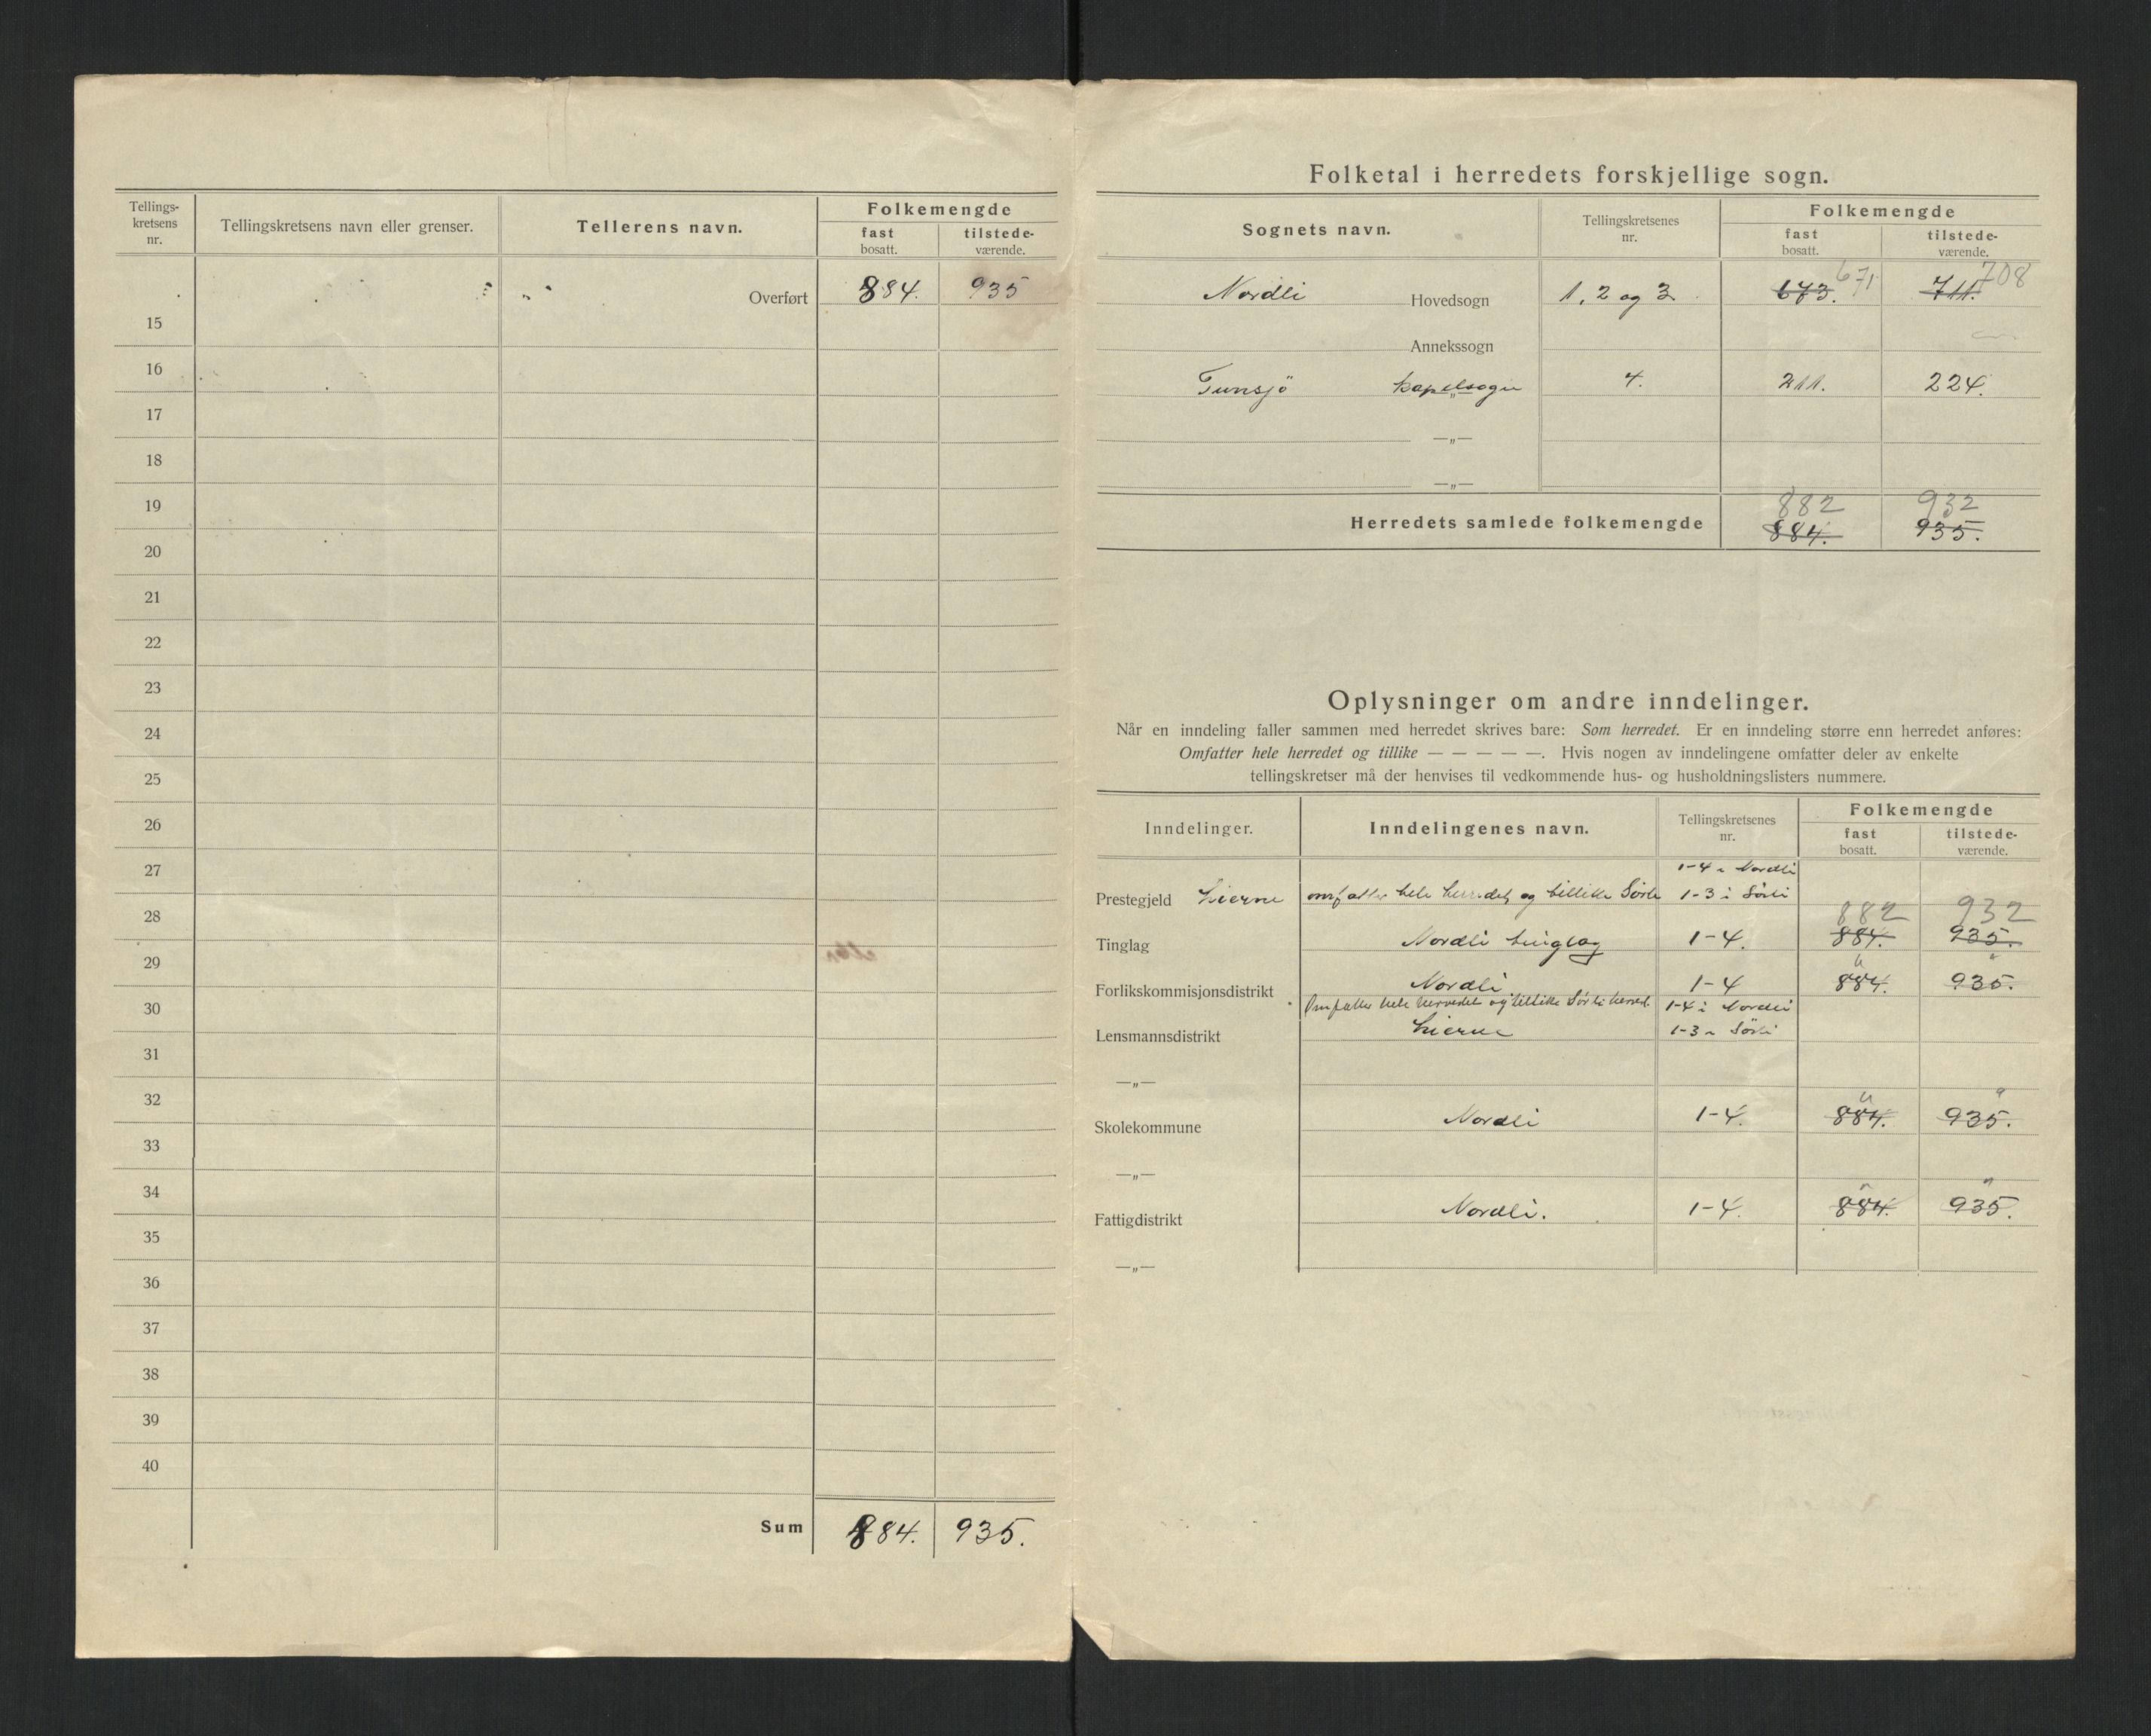 Tellings-
kretsens
nr.
Tellingskretsens navn eller grenser.
Tellerens navn.
Folkemengde
fast
bosatt.
tilstede-
værende.
Overført 884. 935
15
16
17
18
19
20
21
22
23
24
25
26
27
28
29
30
31
32
33
34
35
36
37
38
39
40
Sum 884. 935.
Folketal i herredets forskjellige sogn.
Sognets navn.
Tellingskretsenes
nr.
Folkemengde
fast
bosatt.
tilstede-
værende.
671 708
Nordli Hovedsogn 1, 2 og 3 673. 711.
Annekssogn
Tunsjö kapelsogn 4. 211. 224.
—„—
—„—
882 932
Herredets samlede folkemengde 884. 935.
Oplysninger om andre inndelinger.
Når en inndeling faller sammen med herredet skrives bare: Som herredet. Er en inndeling større enn herredet anføres:
Omfatter hele herredet og tillike — — — — —. Hvis nogen av inndelingene omfatter deler av enkelte
tellingskretser må der henvises til vedkommende hus- og husholdningslisters nummere.
Inndelinger.
Inndelingenes navn.
Tellingskretsenes
nr.
Folkemengde
fast
bosatt.
tilstede-
værende.
1-4 i Nordli
Prestegjeld Lierne omfatter hele herredet og tillike Sørli 1-3 i Sørli
882 932
Tinglag Nordli tinglag 1-4. 884. 935.
" "
Forlikskommisjonsdistrikt Nordli 1-4 884. 935.
Omfatter hele herredet og tillike Sørli herred. 1-4 i Nordli
Lensmannsdistrikt Lierne 1-3 " Sörli
—„—
" "
Skolekommune Nordli 1-4. 884. 935.
—„—
" "
Fattigdistrikt Nordli. 1-4. 884. 935.
—„—